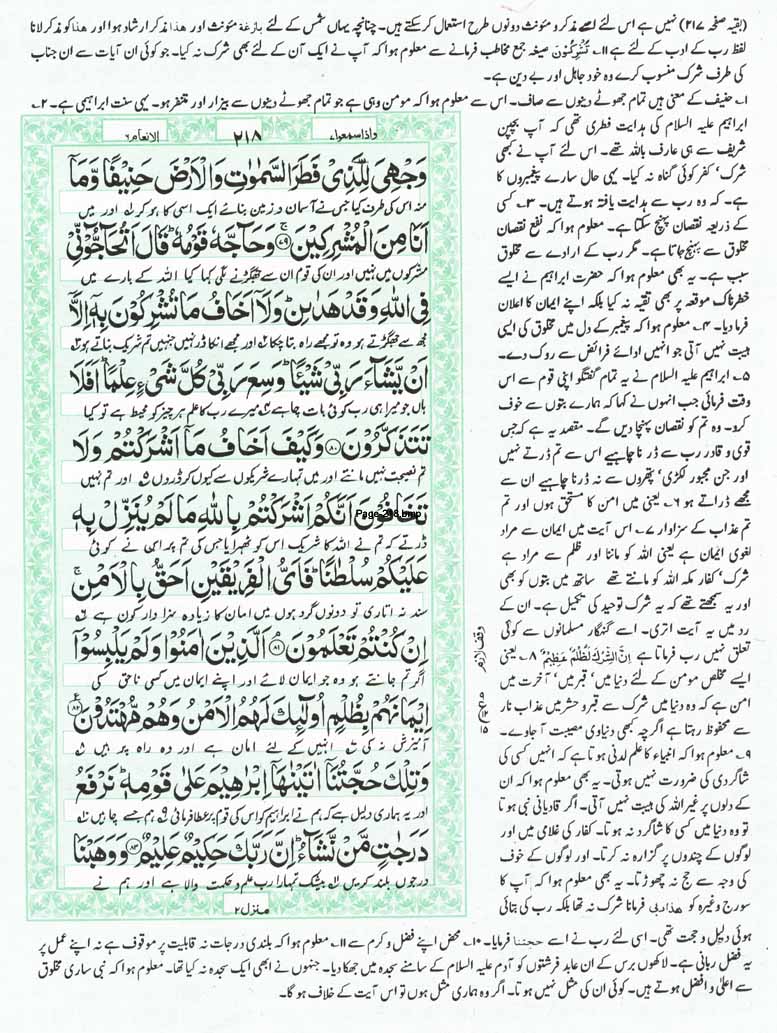 (بقیہ صفحہ ۲۱۷) نہیں ہے اس لئے اسے مذکر و مؤنث دونوں طرح استعمال کر سکتے ہیں۔ چنانچہ یہاں شمس کے لئے بازغة مؤنث اور هذا مذکر ارشاد ہوا اور هذا کو مذکر لانا
لفظ رب کے ادب کے لئے ہے ۱۱۔ تُشْرِكُوْنَ صیغہ جمع مخاطب فرمانے سے معلوم ہوا کہ آپ نے ایک آن کے لئے بھی شرک نہ کیا۔ جو کوئی ان آیات سے ان جناب
کی طرف شرک منسوب کرے وہ خود جاہل اور بے دین ہے۔
۱۔ حنیف کے معنی ہیں تمام جھوٹے دینوں سے صاف۔ اس سے معلوم ہوا کہ مومن وہی ہے جو تمام جھوٹے دینوں سے بیزار اور متنفر ہو۔ یہی سنت ابراہیمی ہے۔ ۲۔
ابراہیم علیہ السلام کی ہدایت فطری تھی کہ آپ بچپن
شریف سے ہی عارف باللہ تھے۔ اس لئے آپ نے کبھی
شرک، کفر کوئی گناہ نہ کیا۔ یہی حال سارے پیغمبروں کا
ہے۔ کہ وہ رب سے ہدایت یافتہ ہوتے ہیں۔ ۳۔ کسی
کے ذریعہ نقصان پہنچ سکتا ہے۔ معلوم ہوا کہ نفع نقصان
مخلوق سے پہنچ جاتا ہے۔ مگر رب کے ارادے سے مخلوق
سبب ہے۔ یہ بھی معلوم ہوا کہ حضرت ابراہیم نے ایسے
خطرناک موقعہ پر بھی تقیہ نہ کیا بلکہ اپنے ایمان کا اعلان
فرما دیا۔ ۴۔ معلوم ہوا کہ پیغمبر کے دل میں مخلوق کی ایسی
ہیبت نہیں آتی جو انہیں ادائے فرائض سے روک دے۔
۵۔ ابراہیم علیہ السلام نے یہ تمام گفتگو اپنی قوم سے اس
وقت فرمائی جب انہوں نے کہا کہ ہمارے بتوں سے خوف
کرو۔ وہ تم کو نقصان پہنچا دیں گے۔ مقصد یہ ہے کہ جس
قوی و قادر رب سے ڈرنا چاہیے اس سے تم ڈرتے نہیں
اور جن مجبور لکڑی، پتھروں سے نہ ڈرنا چاہیے ان سے
مجھے ڈراتے ہو ۶۔ یعنی میں امن کا مستحق ہوں اور تم
تم عذاب کے سزاوار ۷۔ اس آیت میں ایمان سے مراد
لغوی ایمان ہے یعنی اللہ کو ماننا اور ظلم سے مراد ہے
شرک، کفار مکہ اللہ کو مانتے تھے ساتھ میں بتوں کو بھی
اور یہ سمجھتے تھے کہ یہ شرک توحید کی تکمیل ہے۔ ان کے
رد میں یہ آیت اتری۔ اسے گنہگار مسلمانوں سے کوئی
تعلق نہیں رب فرماتا ہے اِنَّ الشِّرْكَ لَظُلْمٌ عَظِيْمٌ ۸۔ یعنی
ایسے مخلص مومن کے لئے دنیا میں، قبر میں، آخرت میں
امن ہے کہ وہ دنیا میں شرک سے قبر و حشر میں عذاب نار
سے محفوظ رہتا ہے اگرچہ کبھی دنیاوی مصیبت آ جاوے۔
۹۔ معلوم ہوا کہ انبیاء کا علم لدنی ہوتا ہے کہ انہیں کسی کی
شاگردی کی ضرورت نہیں ہوتی۔ یہ بھی معلوم ہوا کہ ان
کے دلوں پر غیر اللہ کی ہیبت نہیں آتی۔ اگر قادیانی نبی ہوتا
تو وہ دنیا میں کسی کا شاگرد نہ ہوتا۔ کفار کی غلامی میں اور
لوگوں کے چندوں پر گزارہ نہ کرتا۔ اور لوگوں کے خوف
کی وجہ سے حج نہ چھوڑتا۔ یہ بھی معلوم ہوا کہ آپ کا
سورج وغیرہ کو هذا ربی فرمانا شرک نہ تھا بلکہ رب کی بتائی
واذا سمعوا ۷ ۲۱۸ الانعام ۶
وَجْهِيَ لِلَّذِيْ فَطَرَ السَّمٰوٰتِ وَالْاَرْضَ حَنِيْفًا وَّمَآ
منہ اس کی طرف کیا جس نے آسمان و زمین بنائے ایک اسی کا ہو کر ۱ اور میں
اَنَا مِنَ الْمُشْرِكِيْنَ ۷۹ وَحَآجَّهٗ قَوْمُهٗ قَالَ اَتُحَآجُّوْٓنِّيْ
مشرکوں میں نہیں اور ان کی قوم ان سے جھگڑنے لگی کہا کیا اللہ کے بارے میں
فِي اللّٰهِ وَقَدْ هَدٰىنِ وَلَآ اَخَافُ مَا تُشْرِكُوْنَ بِهٖٓ اِلَّآ
مجھ سے جھگڑتے ہو وہ تو مجھے راہ بتا چکا ۲ اور مجھے انکا ڈر نہیں جنہیں تم شریک بتاتے ہو
اَنْ يَّشَآءَ رَبِّيْ شَيْئًا وَسِعَ رَبِّيْ كُلَّ شَيْءٍ عِلْمًا اَفَلَا
ہاں جو میرا ہی رب کوئی بات چاہے ۳ میرے رب کا علم ہر چیز کو محیط ہے تو کیا
تَتَذَكَّرُوْنَ ۸۰ وَكَيْفَ اَخَافُ مَآ اَشْرَكْتُمْ وَلَا
تم نصیحت نہیں مانتے اور میں تمہارے شریکوں سے کیوں کر ڈروں ۵ اور تم نہیں
تَخَافُوْنَ اَنَّكُمْ اَشْرَكْتُمْ بِاللّٰهِ مَا لَمْ يُنَزِّلْ بِهٖ
Page 218.bmp
ڈرتے کہ تم نے اللہ کا شریک اس کو ٹھہرایا جس کی تم پر اس نے کوئی
عَلَيْكُمْ سُلْطٰنًا فَاَيُّ الْفَرِيْقَيْنِ اَحَقُّ بِالْاَمْنِ
سند نہ اتاری تو دونوں گروہوں میں امان کا زیادہ سزا وار کون ہے ۶
اِنْ كُنْتُمْ تَعْلَمُوْنَ ۸۱ اَلَّذِيْنَ اٰمَنُوْا وَلَمْ يَلْبِسُوْٓا
اگر تم جانتے ہو وہ جو ایمان لائے اور اپنے ایمان میں کسی ناحق کی
اِيْمَانَهُمْ بِظُلْمٍ اُولٰٓئِكَ لَهُمُ الْاَمْنُ وَهُمْ مُّهْتَدُوْنَ ۸۲
آمیزش نہ کی ۷ انہیں کے لئے امان ہے اور وہ راہ پر ہیں ۸
وَتِلْكَ حُجَّتُنَآ اٰتَيْنٰهَآ اِبْرٰهِيْمَ عَلٰى قَوْمِهٖ نَرْفَعُ
اور یہ ہماری دلیل ہے کہ ہم نے ابراہیم کو اس کی قوم پر عطا فرمائی ۹ ہم جسے چاہیں
دَرَجٰتٍ مَّنْ نَّشَآءُ اِنَّ رَبَّكَ حَكِيْمٌ عَلِيْمٌ ۸۳ وَوَهَبْنَا
درجوں بلند کریں ۱۰ بیشک تمہارا رب علم و حکمت والا ہے اور ہم نے
منزل ۲
وقف لازم
ہوئی دلیل و حجت تھی۔ اسی لئے رب نے اسے حجتنا فرمایا۔ ۱۰۔ محض اپنے فضل و کرم سے ۱۱۔ معلوم ہوا کہ بلندی درجات نہ قابلیت پر موقوف ہے نہ اپنے عمل پر
یہ فضل ربانی ہے۔ لاکھوں برس کے ان عابد فرشتوں کو آدم علیہ السلام کے سامنے سجدہ میں جھکا دیا۔ جنہوں نے ابھی ایک سجدہ نہ کیا تھا۔ معلوم ہوا کہ نبی ساری مخلوق
سے اعلیٰ و افضل ہوتے ہیں۔ کوئی ان کی مثل نہیں ہوتا۔ اگر وہ ہماری مثل ہوں تو اس آیت کے خلاف ہو گا۔